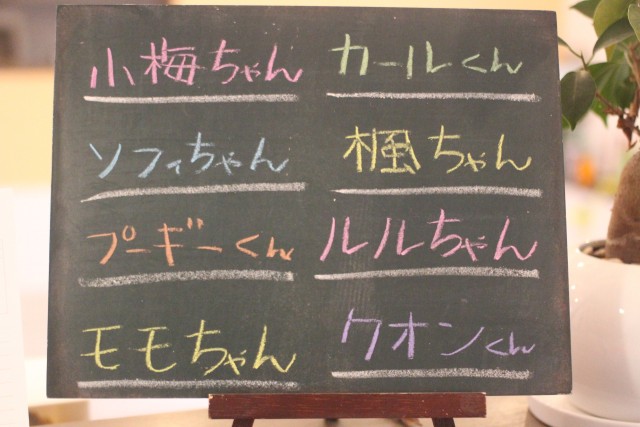 小梅ちゃん
カールくん
ソフィちゃん
楓ちゃん
プーギーくん
ルルちゃん
モモちゃん
クオンくん